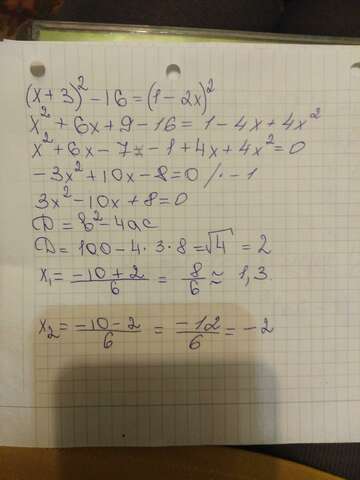 (x+3)² - 16 = (1-2x)²
x² + 6x + 9 - 16 = 1 - 4x + 4x²
x² + 6x - 7 - 1 + 4x + 4x² = 0
-3x² + 10x - 8 = 0 /·-1
3x² - 10x + 8 = 0
D = b² - 4ac
D = 100 - 4·3·8 = √4 = 2
x₁ = (-10+2)/6 = 8/6 ≈ 1,3
x₂ = (-10-2)/6 = (-12)/6 = -2